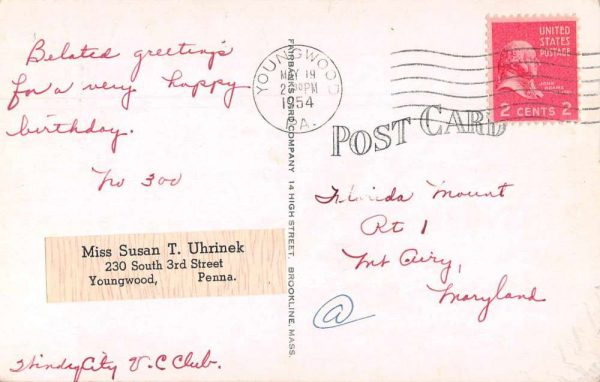 Belated greetings
for a very happy
birthday.
No 300
Miss Susan T. Uhrinek
230 South 3rd Street
Youngwood, Penna.
WindyCity V.C Club.
FAIRBANKS CARD COMPANY 14 HIGH STREET, BROOKLINE, MASS.
YOUNGWOOD
MAY 19
PM
1954
PA.
UNITED
STATES
POSTAGE
JOHN
ADAMS
2 CENTS 2
POST CARD
Florida Mount
Rt 1
Mt Airy,
Maryland
@